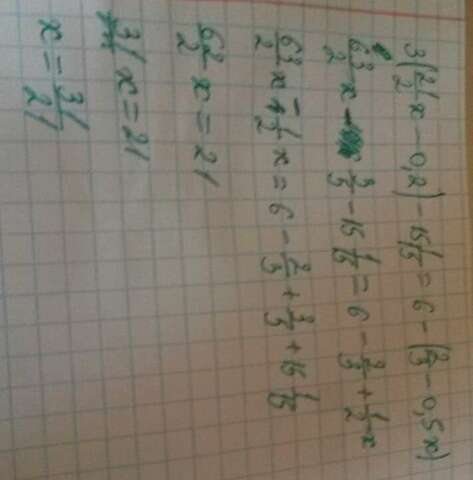 3(21/2 x − 0,2) − 15 1/15 = 6 − (2/3 − 0,5x)
63/2 x − 3/5 − 15 1/15 = 6 − 2/3 + 1/2 x
63/2 x − 1/2 x = 6 − 2/3 + 3/5 + 15 1/15
62/2 x = 21
31 x = 21
x = 31/21